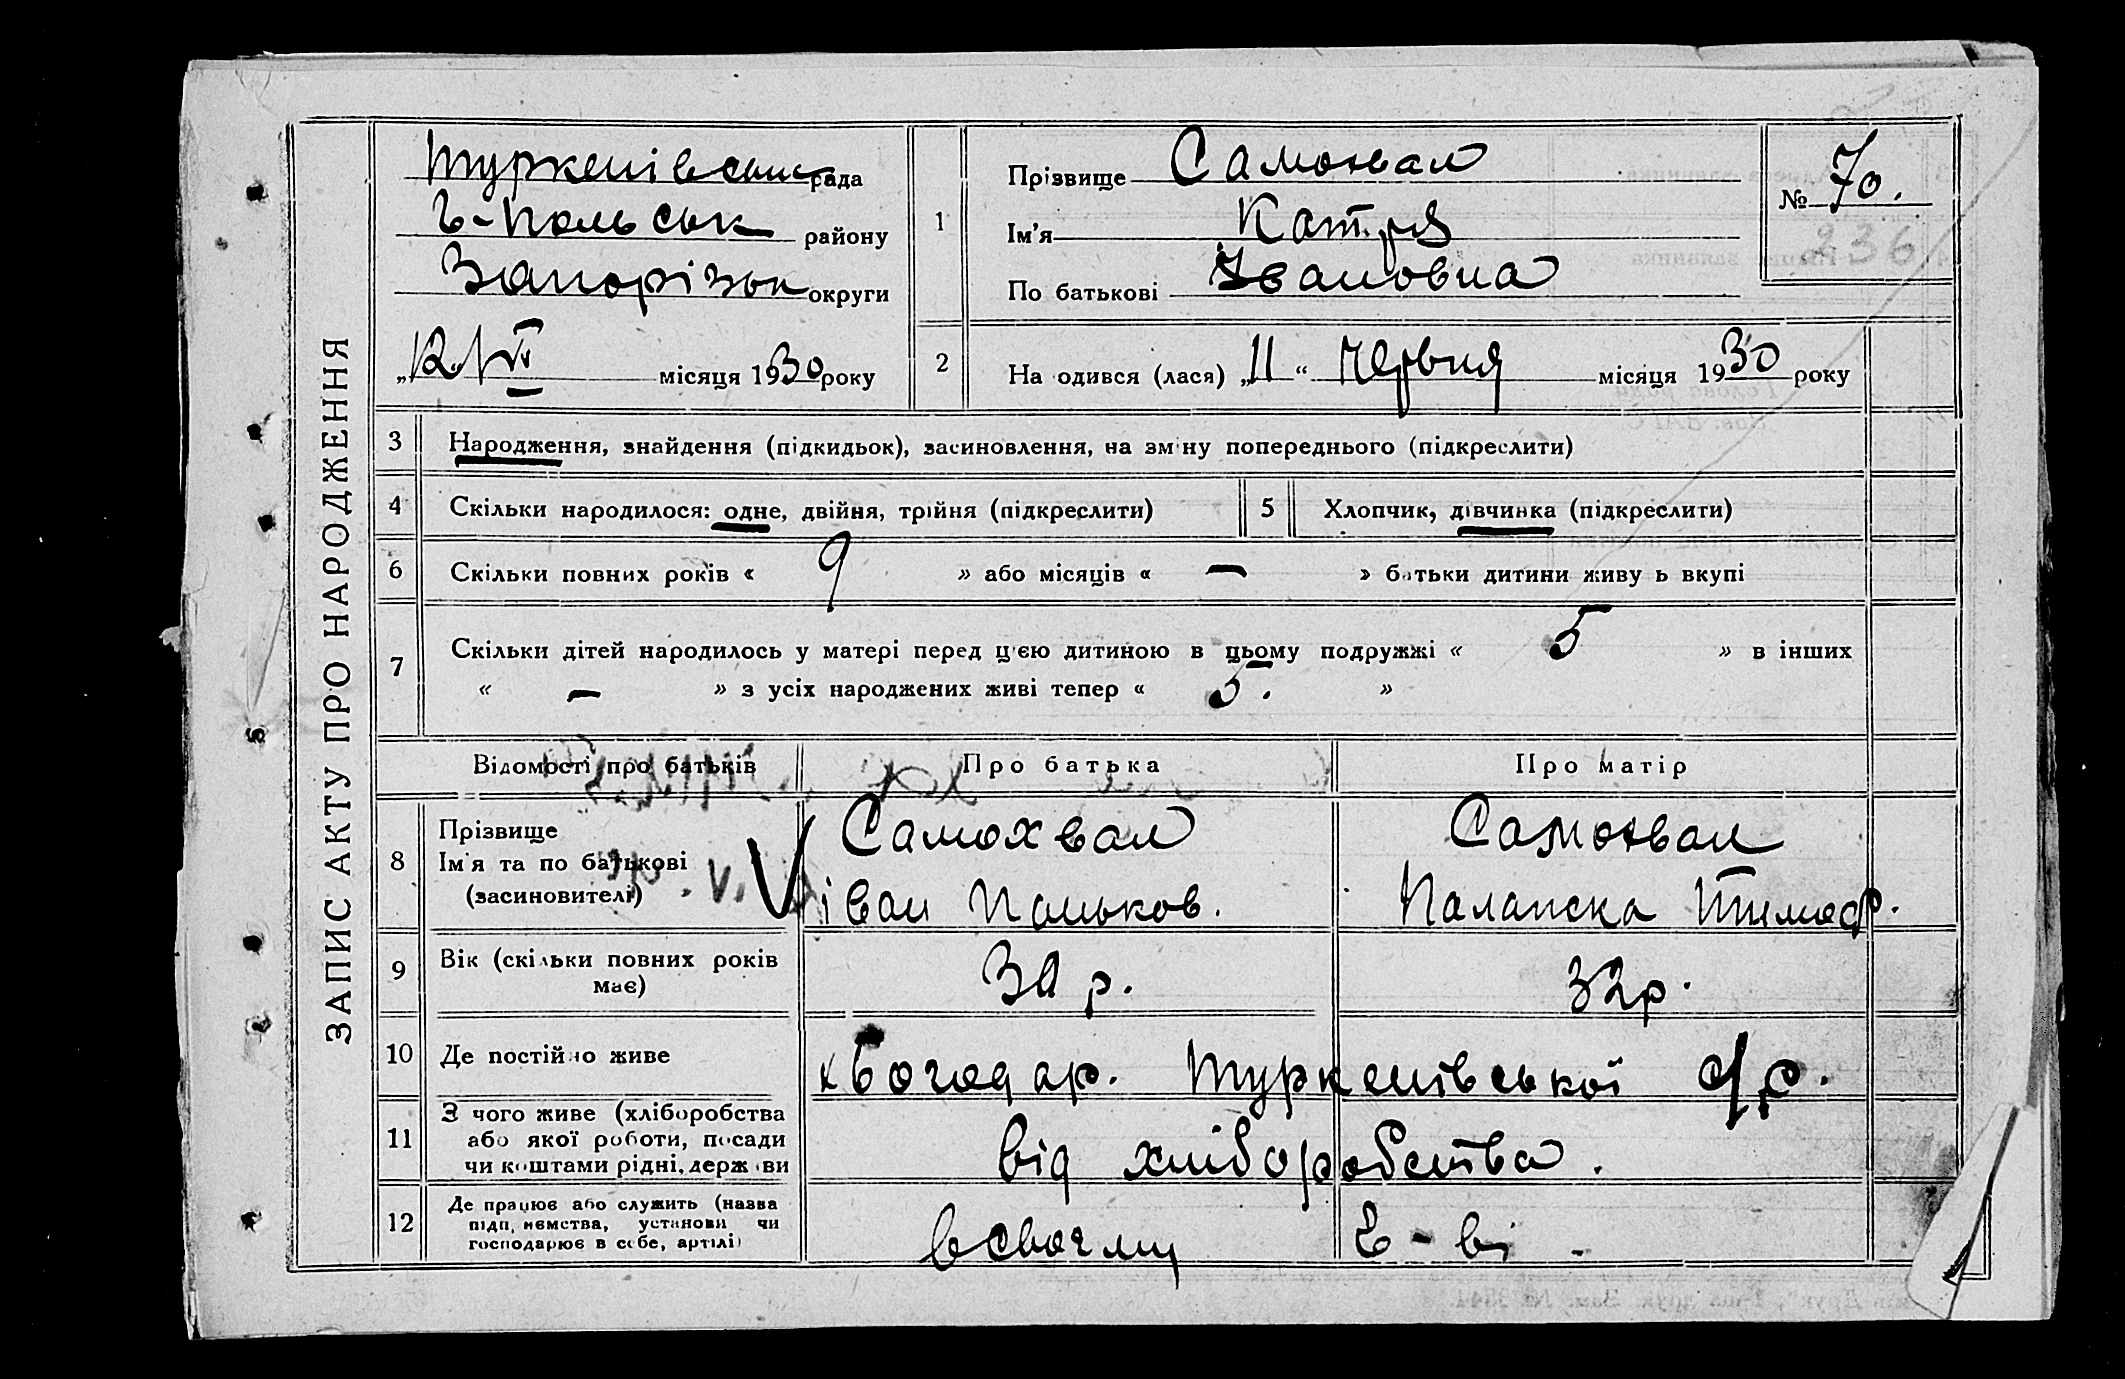 ЗАПИС АКТУ ПРО НАРОДЖЕННЯ
Туркенівська рада
Г-Польськ району
Запорізьк округи
„12./VI місяця 1930 року
1
Прізвище Самохвал
Ім'я Катря
По батькові Івановна
№ 70.
236
2
На одився (лася) „11“ Червня місяця 1930 року
3 Народження, знайдення (підкидьок), засиновлення, на зміну попереднього (підкреслити)
4 Скільки народилося: одне, двійня, трійня (підкреслити)
5 Хлопчик, дівчинка (підкреслити)
6 Скільки повних років « 9 » або місяців « — » батьки дитини живу ь вкупі
7 Скільки дітей народилось у матері перед цією дитиною в цьому подружжі « 5 » в інших
« — » з усіх народжених живі тепер « 5. »
Відомості про батьків Про батька Про матір
8 Прізвище
Ім'я та по батькові
(засиновителі)
Самохвал
іван Паньков.
Самохвал
Палапска Тимоф.
9 Вік (скільки повних років
має)
30 р.
32 р.
10 Де постійно живе
х Богодар. Туркенівської с/р.
11 З чого живе (хліборобства
або якої роботи, посади
чи коштами рідні, держави
від хліборобства.
12 Де працює або служить (назва
підп, иємства, установи чи
господарює в себе, артілі)
в своєму г-ві.